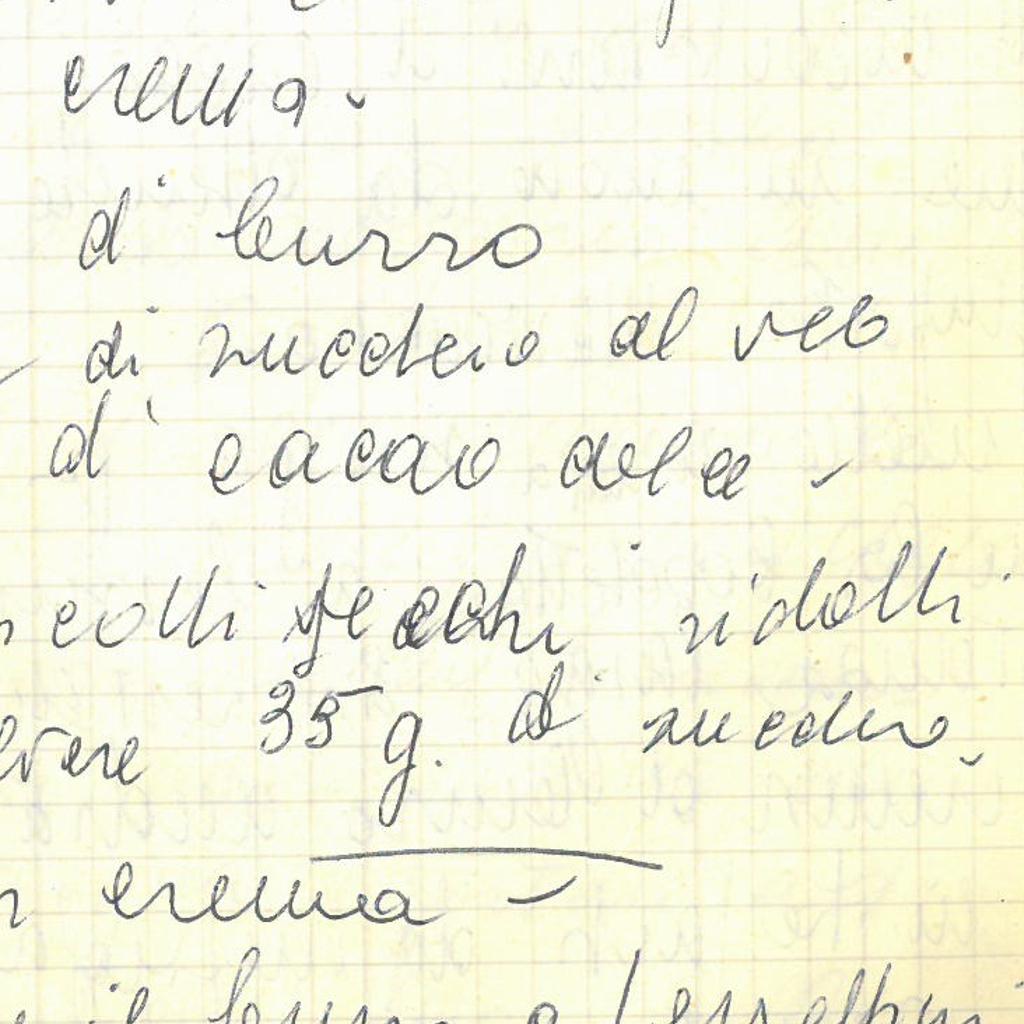 crema.
di burro
di zucchero al velo
di cacao dolce -
scotti secchi ridotti
lvere 35 g. di zucchero.
crema -
il burro a